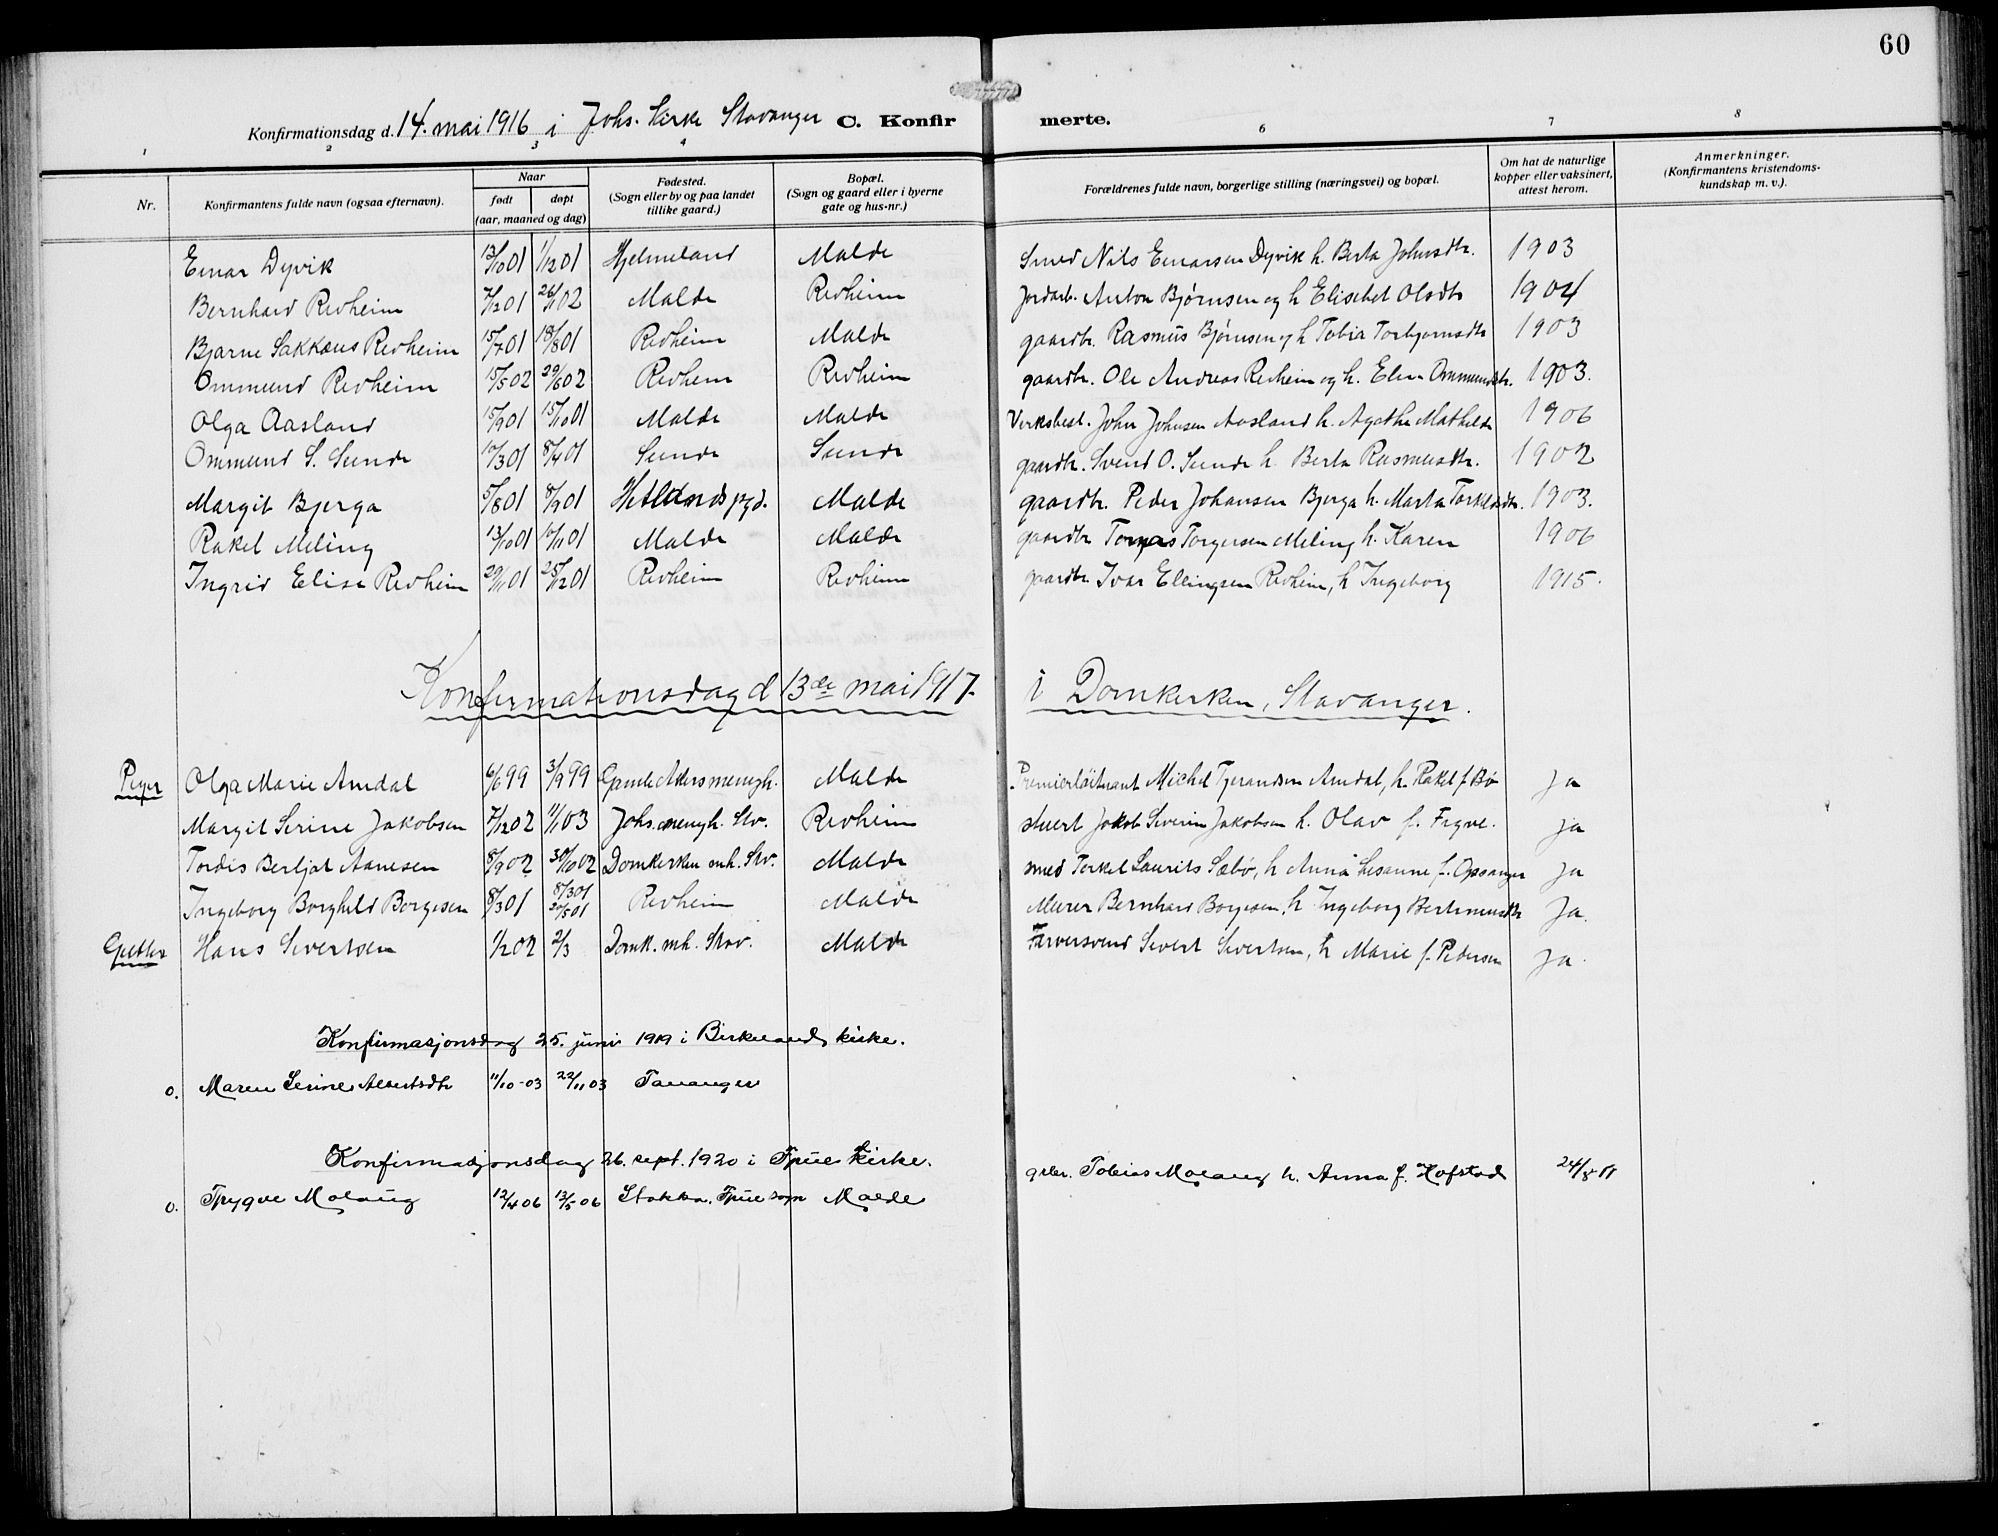 60
Konfirmationsdag d. 14. mai 1916 i Johs. Kirke Stavanger C. Konfirmerte.
1 2 3 4 6 7 8
Nr. Konfirmantens fulde navn (ogsaa efternavn). Naar født døpt (aar, maaned og dag) Fødested. (Sogn eller by og paa landet tillike gaard.) Bopæl. (Sogn og gaard eller i byerne gate og hus-nr.) Forældrenes fulde navn, borgerlige stilling (næringsvei) og bopæl. Om hat de naturlige kopper eller vaksinert, attest herom. Anmerkninger. (Konfirmantens kristendoms-kundskap m. v.).
Einar Dyvik 13/10 01 1/12 01 Hjelmeland Malde Smed Nils Einarsen Dyvik h. Berta Johnsdtr. 1903
Bernhard Revheim 7/12 01 26/1 02 Malde Revheim Jordarb. Anton Bjørnsen og h Elisabet Olsdtr 1904
Bjarne Sakkæus Revheim 15/7 01 18/8 01 Revheim Malde gaardbr. Rasmus Bjørnsen og h Tobia Torbjørnsdtr 1903
Ommund Revheim 15/5 02 29/6 02 Revheim Revheim gaardbr. Ole Andreas Revheim og h. Elen Ommundsdtr. 1903.
Olga Aasland 15/9 01 15/10 01 Malde Malde Verksbest. John Johnsen Aasland h. Agathe Mathilde 1906
Ommund S. Sunde 10/3 01 8/4 01 Sunde Sunde gaardbr. Svend O. Sunde h. Berta Rasmusdtr. 1902
Margit Bjerga 5/8 01 8/9 01 Hetlands pgd. Malde gaardbr. Peder Johansen Bjerga h. Marta Torkelsdtr. 1903.
Rakel Meling 13/10 01 10/11 01 Malde Malde gaardbr Tomas Torgersen Meling h. Karen 1906
Ingrid Elise Revheim 29/11 01 25/12 01 Revheim Revheim gaardbr. Ivar Ellingsen Revheim, h Ingeborg 1915.
Konfirmationsdag d 13de mai 1917. i Domkirken, Stavanger.
Piger Olga Marie Amdal 6/6 99 3/9 99 Gamle Akers menigh. Malde Premierløitnant Michel Tjerandsen Amdal, h. Rakel f. Bø ja
Margit Serine Jakobsen 7/12 02 11/1 03 Johs. menigh. Stv. Revheim stuert Jakob Severin Jakobsen h. Olav f. Frgve. ja
Tordis Berljot Aanesen 8/9 02 30/10 02 Domkirken mh. Stv. Malde smed Torkel Laurits Sæbø, h Anna Susanne f. Opsanger ja
Ingeborg Borghild Borgesen 8/3 01 8/3 01 20/5 01 Revheim Malde Murer Bernhard Borgesen, h Ingeborg Bertinusdtr Ja.
Gutter Hans Sivertsen 1/2 02 2/3 Domk. mh. Stav. Malde Farversvend Sivert Sivertsen, h Marie f. Pedersen Ja.
Konfirmasjonsdag 25. juni 1919 i Birkelands kirke.
o. Maren Serine Albertsdtr 11/10-03 22/11 03 Tananger
Konfirmasjonsdag 26. sept. 1920 i Tjue kirke.
o. Trygve Molaug 12/4 06 13/5 06 Stokka. Tjue sogn Malde grbr. Tobias Molaug h. Anna f. Hofstad 24/8 11